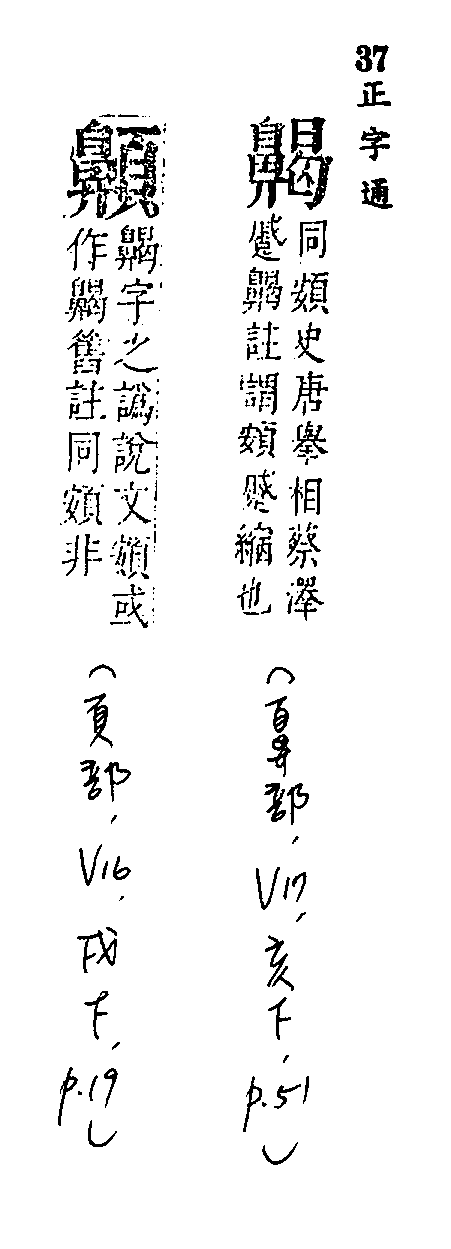 37 正字通
齃
同頞史唐舉相蔡澤
蹙齃註謂頞蹙縮也
(鼻部, V17, 亥下, p.51)
齃字之譌說文頞或
作齃舊註同頞非
(頁部, V16, 戌下, p.19)